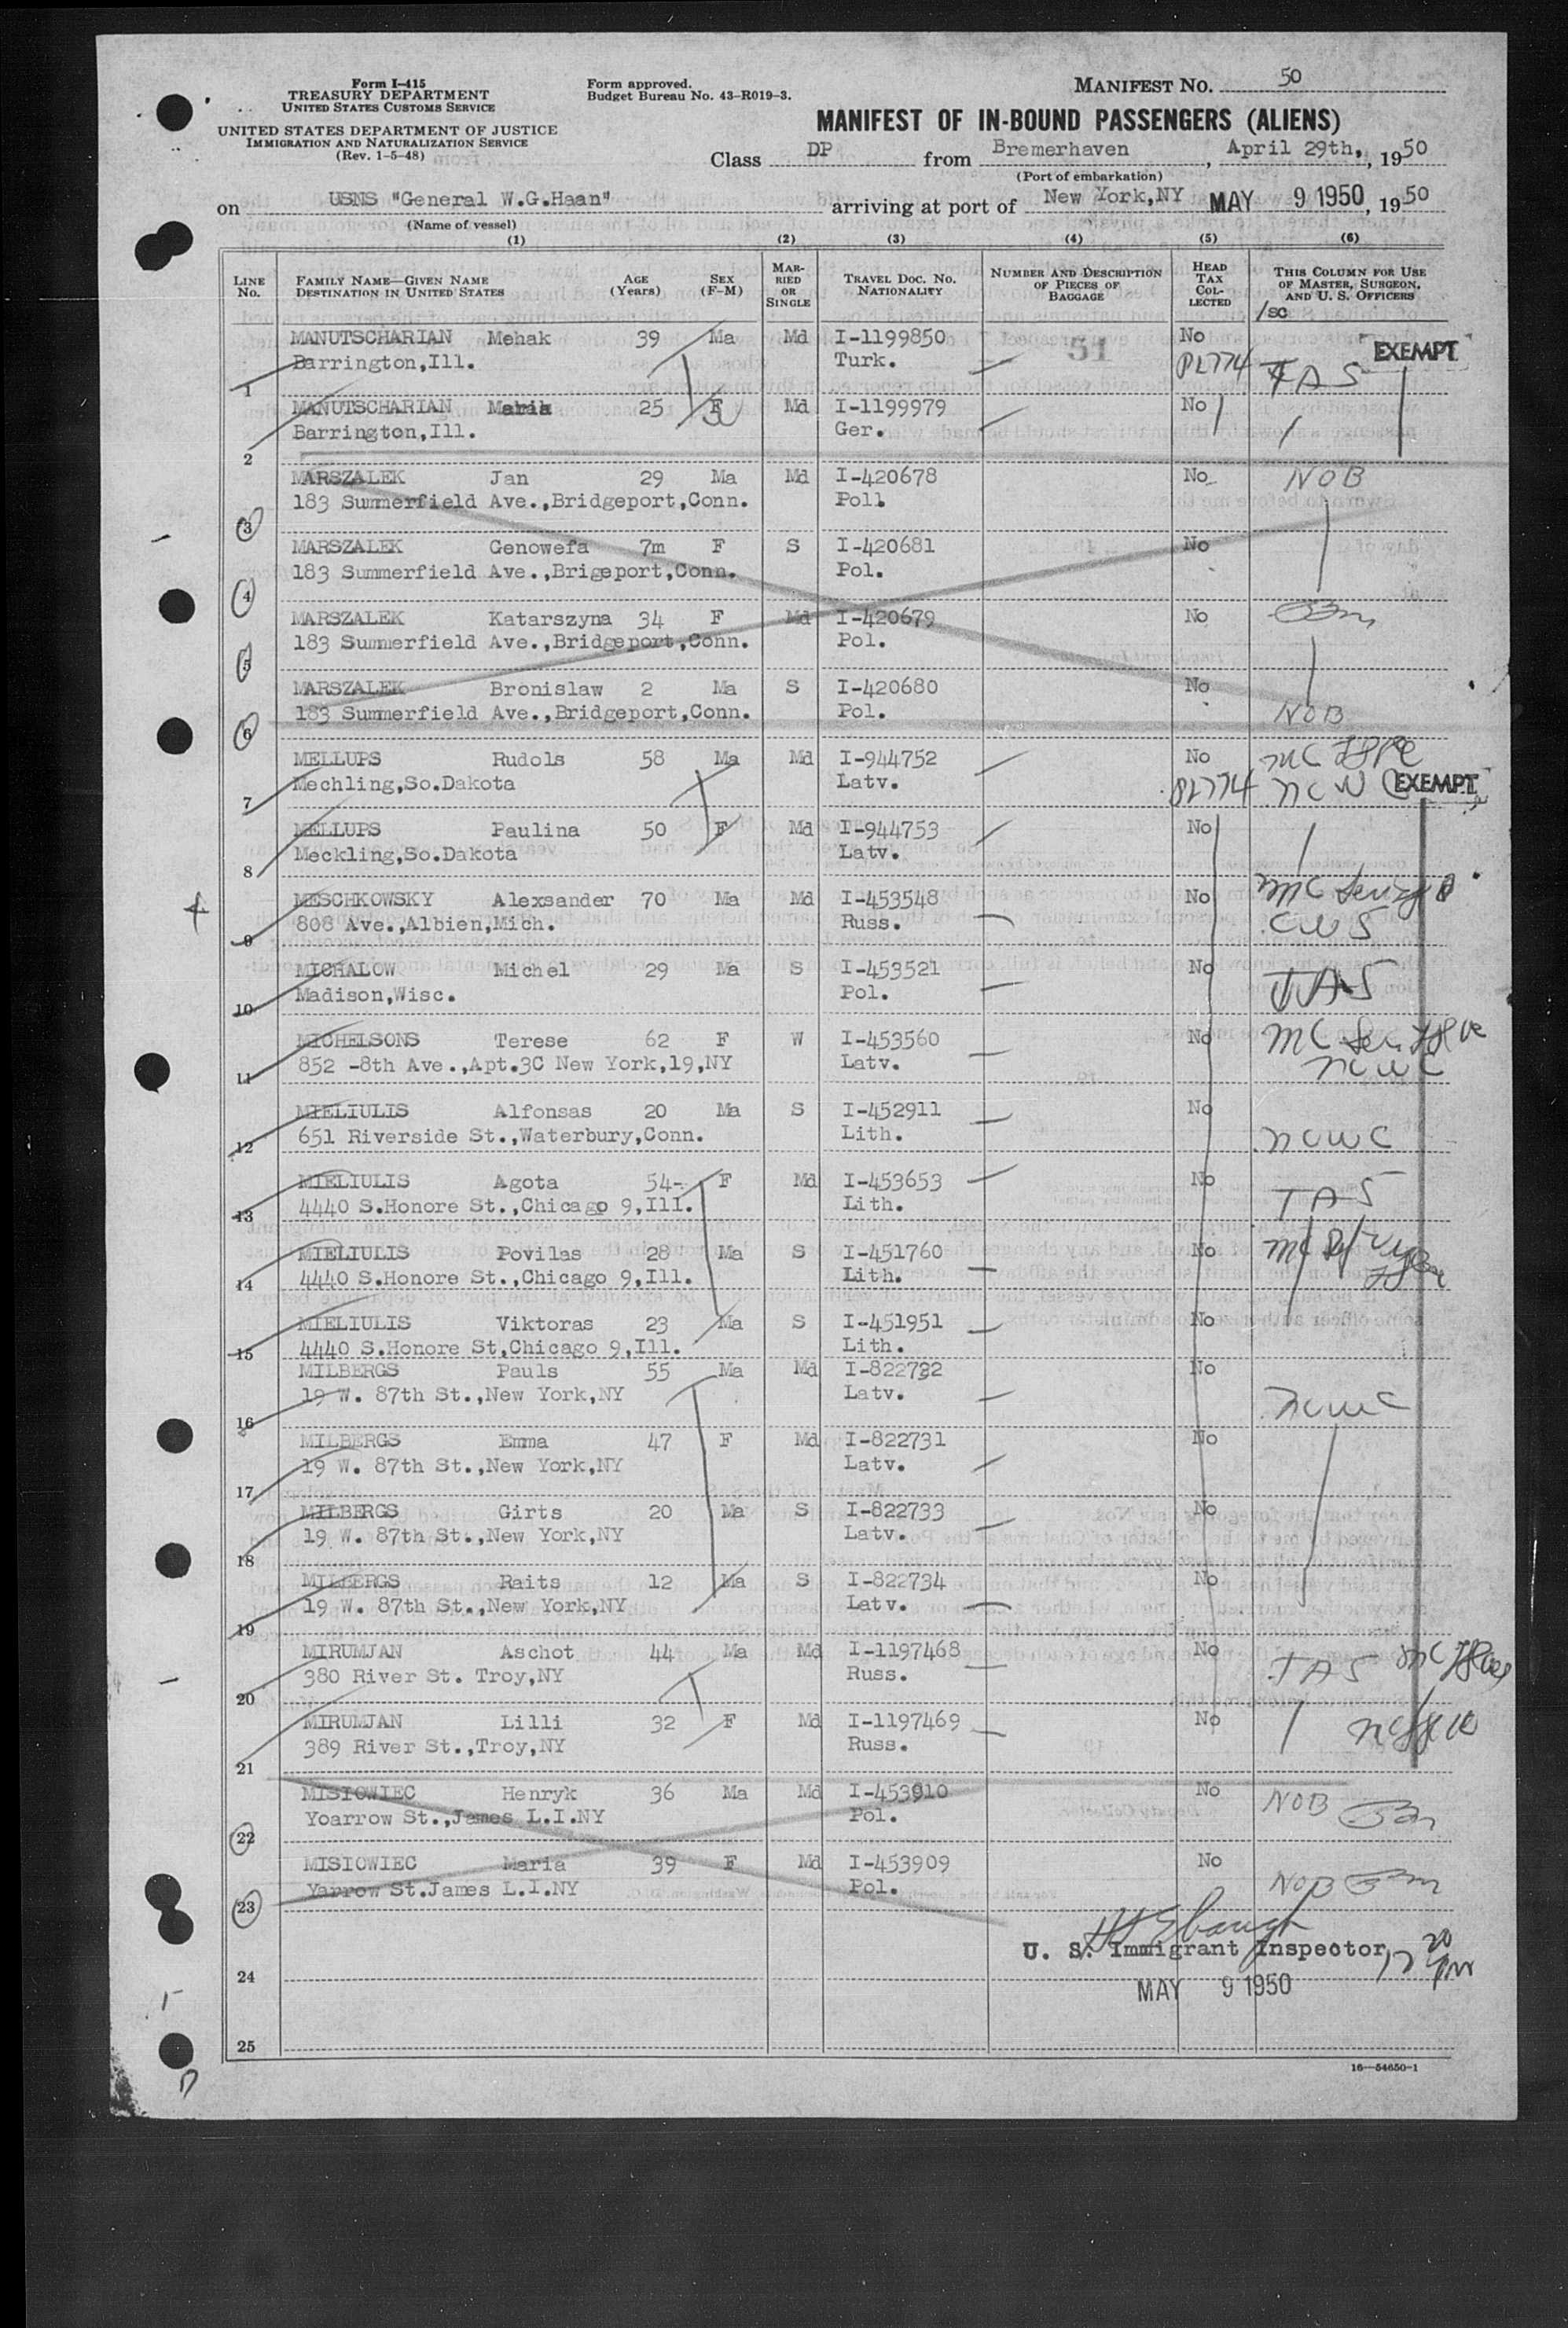 Form I-415
TREASURY DEPARTMENT
UNITED STATES CUSTOMS SERVICE
UNITED STATES DEPARTMENT OF JUSTICE
IMMIGRATION AND NATURALIZATION SERVICE
(Rev. 1-5-48)
Form approved.
Budget Bureau No. 43-R019-3.
MANIFEST NO. 50
MANIFEST OF IN-BOUND PASSENGERS (ALIENS)
Class DP from Bremerhaven, April 29th, 1950
(Port of embarkation)
on USNS "General W.G.Haan" arriving at port of New York,NY MAY 9 1950, 1950
(Name of vessel)
(1) (2) (3) (4) (5) (6)
LINE No. FAMILY NAME—GIVEN NAME DESTINATION IN UNITED STATES AGE (Years) SEX (F-M) MARRIED OR SINGLE TRAVEL DOC. NO. NATIONALITY NUMBER AND DESCRIPTION OF PIECES OF BAGGAGE HEAD TAX COLLECTED THIS COLUMN FOR USE OF MASTER, SURGEON, AND U. S. OFFICERS
/sc
MANUTSCHARIAN Mehak 39 Ma Md I-1199850 51 No EXEMPT
1 Barrington,Ill. Turk. PL774 TAS
MANUTSCHARIAN Maria 25 F Md I-1199979 No
2 Barrington,Ill. Ger.
MARSZALEK Jan 29 Ma Md I-420678 No NOB
3 183 Summerfield Ave.,Bridgeport,Conn. Poll
MARSZALEK Genowefa 7m F S I-420681 No
4 183 Summerfield Ave.,Brigeport,Conn. Pol.
MARSZALEK Katarszyna 34 F Md I-420679 No
5 183 Summerfield Ave.,Bridgeport,Conn. Pol.
MARSZALEK Bronislaw 2 Ma S I-420680 No
6 183 Summerfield Ave.,Bridgeport,Conn. Pol. NOB
MELLUPS Rudols 58 Ma Md I-944752 No
7 Mechling,So.Dakota Latv. PL774 EXEMPT
MELLUPS Paulina 50 F Md I-944753 No
8 Meckling,So.Dakota Latv.
MESCHKOWSKY Alexsander 70 Ma Md I-453548 No
9 808 Ave.,Albien,Mich. Russ. CWS
MICHALOW Michel 29 Ma S I-453521 No
10 Madison,Wisc. Pol. TAS
MICHELSONS Terese 62 F W I-453560 No
11 852 -8th Ave.,Apt.3C New York,19,NY Latv. NCWC
MIELIULIS Alfonsas 20 Ma S I-452911 No
12 651 Riverside St.,Waterbury,Conn. Lith. NCWC
MIELIULIS Agota 54- F Md I-453653 No
13 4440 S.Honore St.,Chicago 9,Ill. Lith. TAS
MIELIULIS Povilas 28 Ma S I-451760 No
14 4440 S.Honore St.,Chicago 9,Ill. Lith.
MIELIULIS Viktoras 23 Ma S I-451951 No
15 4440 S.Honore St,Chicago 9,Ill. Lith.
MILBERGS Pauls 55 Ma Md I-822732 No
16 19 W. 87th St.,New York,NY Latv. NCWC
MILBERGS Emma 47 F Md I-822731 No
17 19 W. 87th St.,New York,NY Latv.
MILBERGS Girts 20 Ma S I-822733 No
18 19 W. 87th St.,New York,NY Latv.
MILBERGS Raits 12 Ma S I-822734 No
19 19 W. 87th St.,New York,NY Latv.
MIRUMJAN Aschot 44 Ma Md I-1197468 No
20 380 River St. Troy,NY Russ. TAS
MIRUMJAN Lilli 32 F Md I-1197469 No
21 389 River St.,Troy,NY Russ.
MISIOWIEC Henryk 36 Ma Md I-453910 No NOB
22 Yoarrow St.,James L.I.NY Pol.
MISIOWIEC Maria 39 F Md I-453909 No
23 Yarrow St.James L.I.NY Pol. NOB
U. S. Immigrant Inspector
24
MAY 9 1950
25
16—54650-1